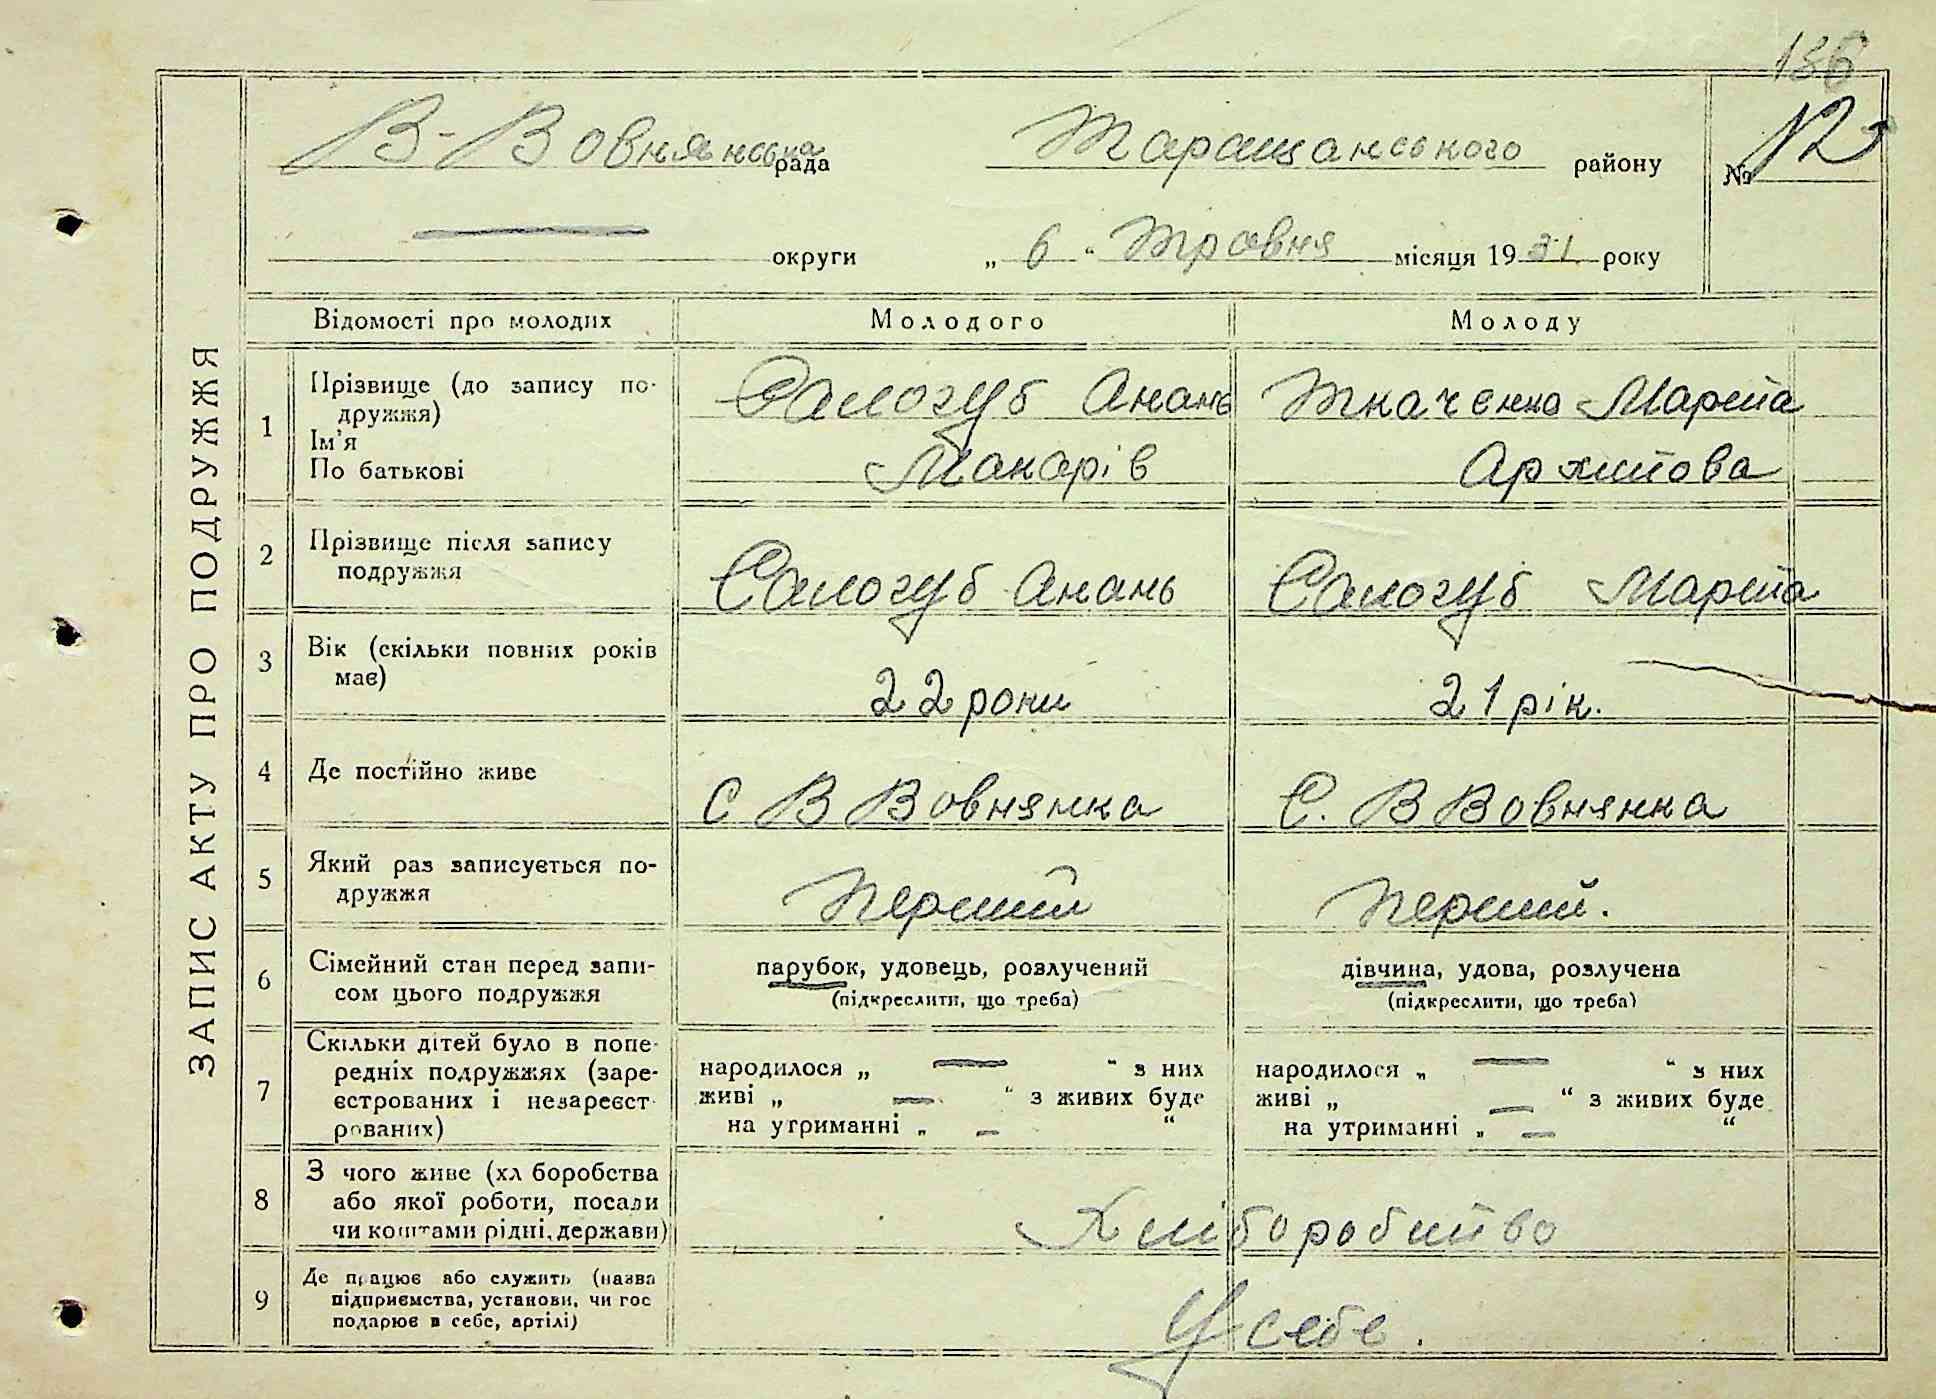 186
В-Вовнянська рада Таращанського району № 12
округи „ 6 “ Травня місяця 1931 року
ЗАПИС АКТУ ПРО ПОДРУЖЖЯ
Відомості про молодих Молодого Молоду
1 Прізвище (до запису по-
дружжя)
Ім'я
По батькові
Салогуб Анань
Макарів
Ткаченко Марта
Архипова
2 Прізвище після запису
подружжя
Салогуб Анань Салогуб Марта
3 Вік (скільки повних років
має)
22 роки 21 рік.
4 Де постійно живе С В Вовнянка С. В Вовнянка
5 Який раз записується по-
дружжя
Перший Перший.
6 Сімейний стан перед запи-
сом цього подружжя
парубок, удовець, розлучений
(підкреслити, що треба)
дівчина, удова, розлучена
(підкреслити, що треба)
7 Скільки дітей було в попе-
редніх подружжях (заре-
єстрованих і незареєст-
рованих)
народилося „ — “ з них
живі „ — “ з живих буде
на утриманні „ — “
народилося „ — “ з них
живі „ — “ з живих буде
на утриманні „ — “
8 З чого живе (хл боробства
або якої роботи, посади
чи коштами рідні, держави)
Хліборобство
9 Де працює або служить (назва
підприємства, установи, чи гос
подарює в себе, артілі)
У себе.